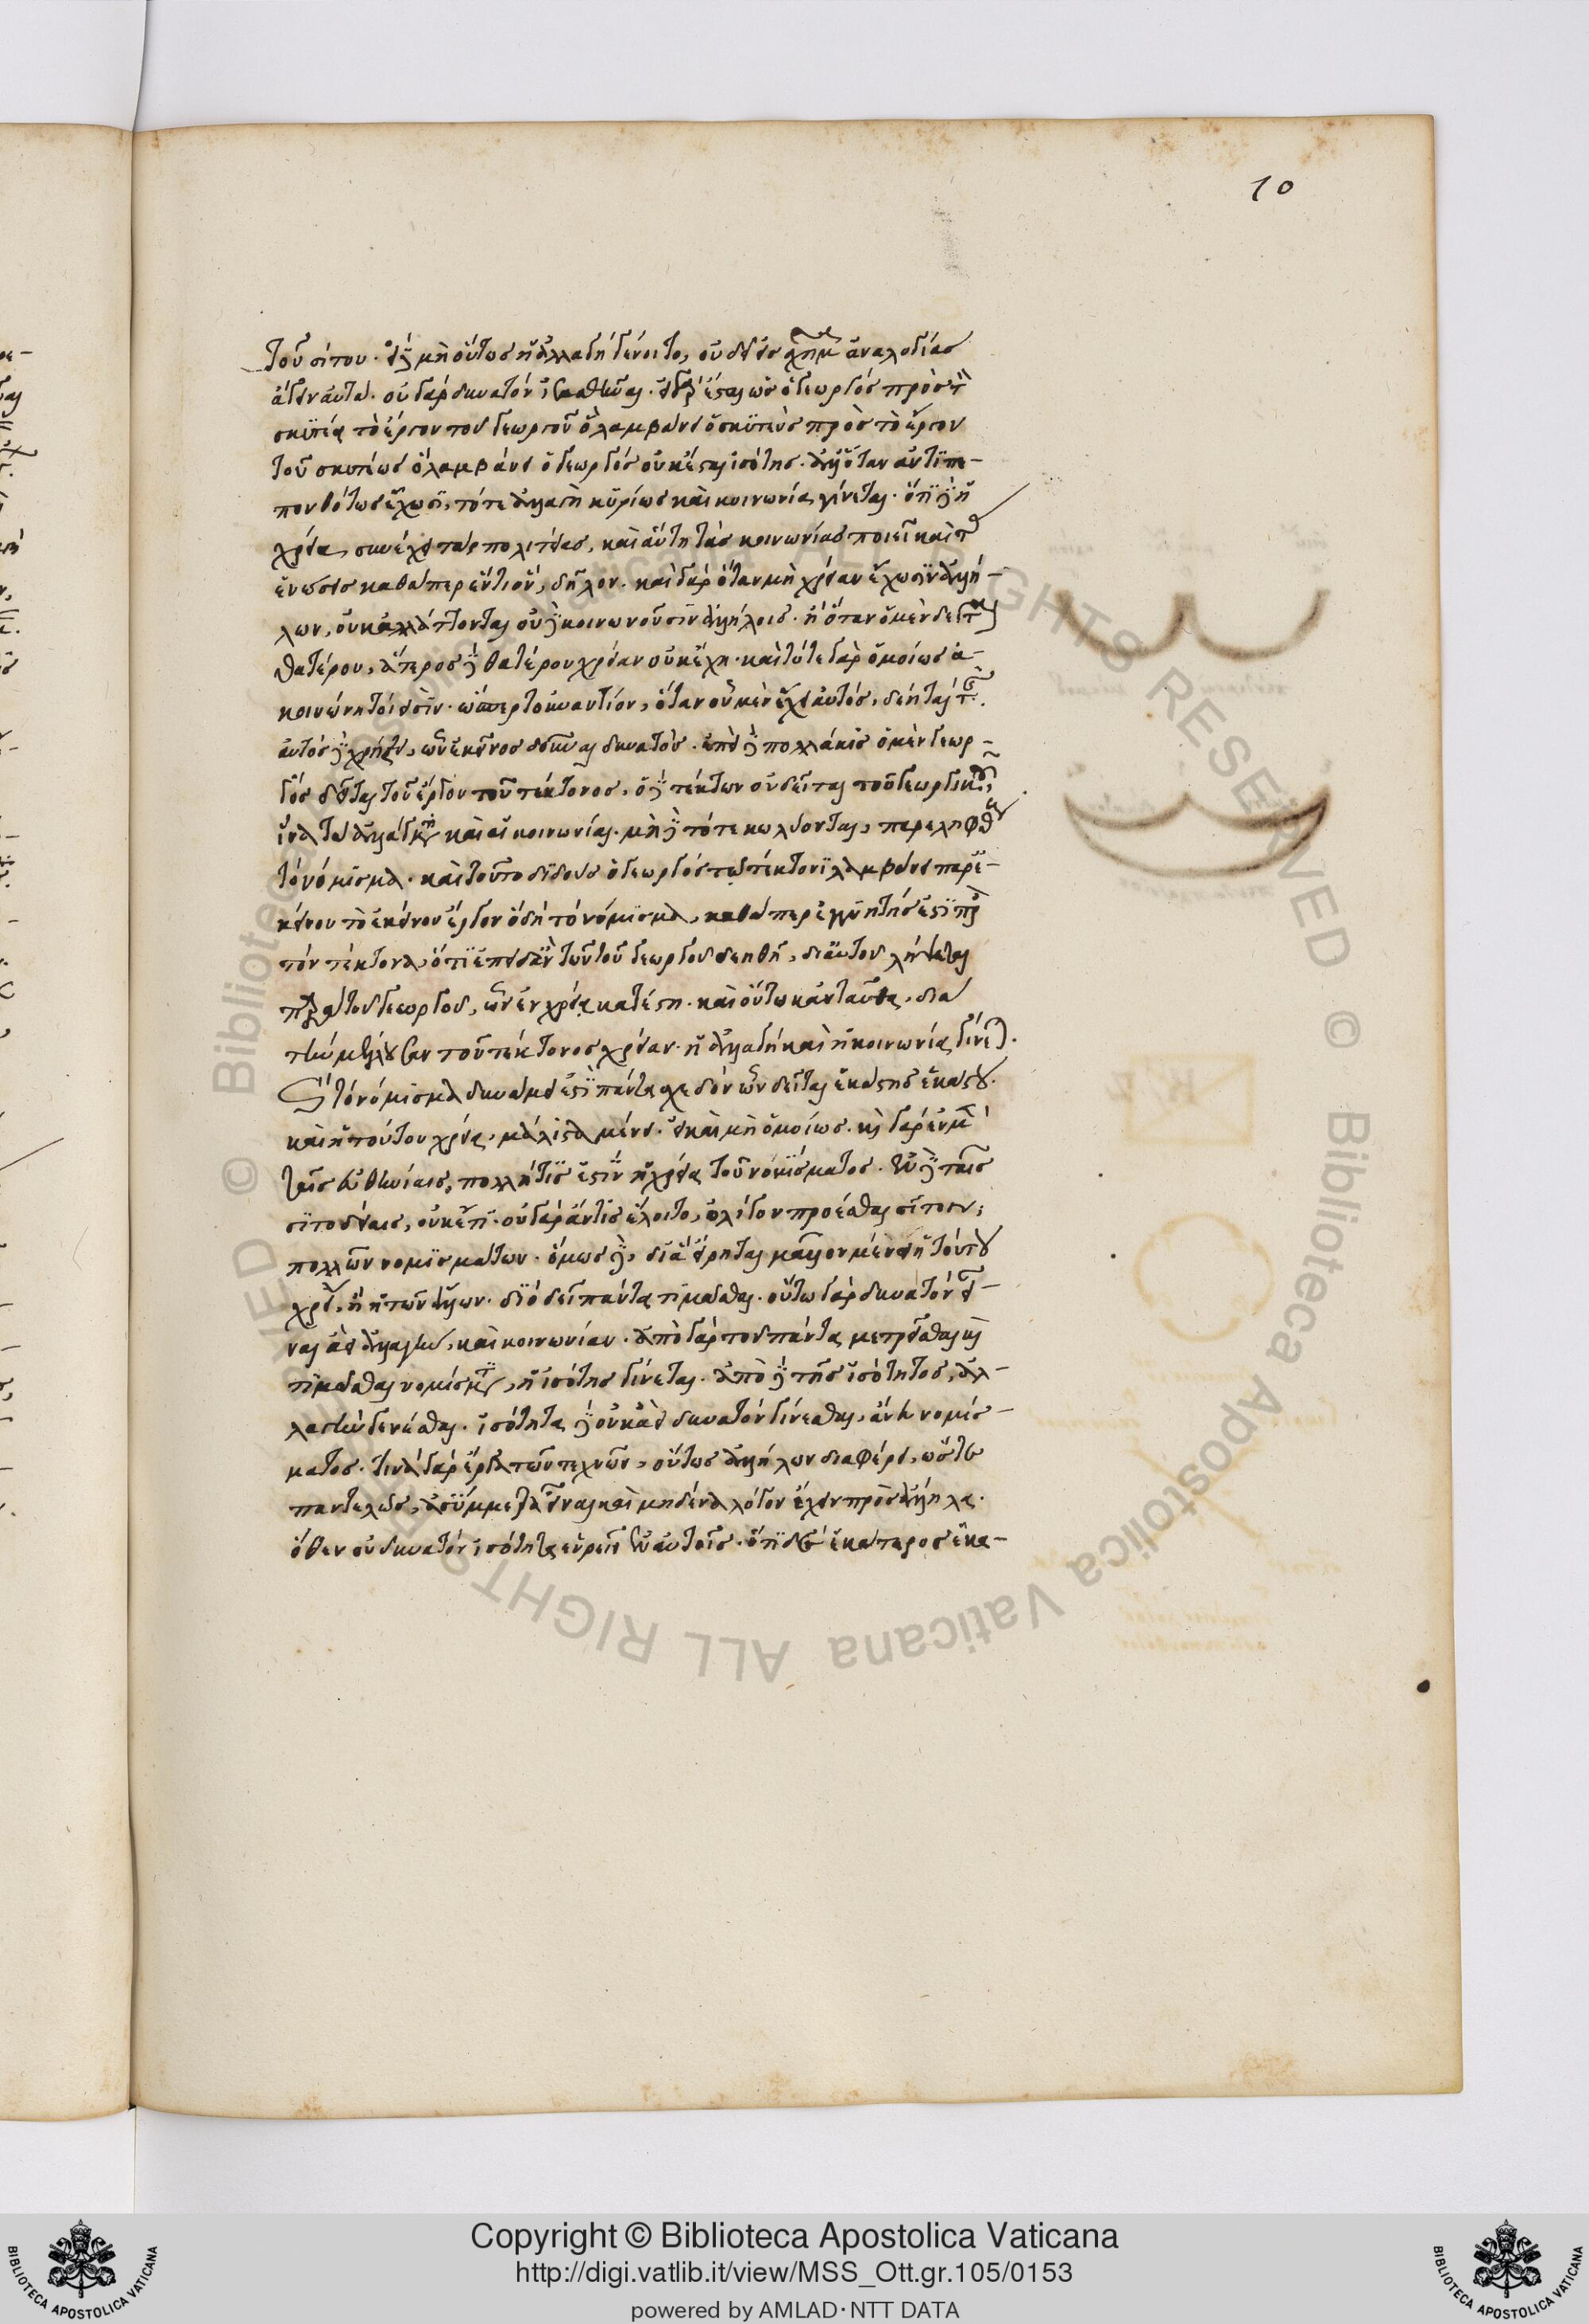 10
τοῦ σίτου. εἰ δὲ μὴ οὕτως ἡ ἀλλαγὴ γένοιτο, οὐδὲ εἰς σχῆμα ἀναλογίας
ἄγειν αὐτά. οὐ γὰρ δυνατόν
ἔσται ὡς ὁ γεωργός πρὸς τὸν
σκυτέα τὸ ἔργον τοῦ γεωργοῦ ὃ λαμβάνει ὁ σκυτεὺς πρὸς τὸ ἔργον
τοῦ σκυτέως ὃ λαμβάνει ὁ γεωργός οὐκ ἔσται ἰσότης. ἀλλ' ὅταν ἀντιπε-
πονθότως ἔχωσι, τότε ἀλλαγὴ κυρίως καὶ κοινωνία γίνεται. ὅτι δὲ ἡ
χρεία συνέχει τὰς πολιτείας, καὶ αὕτη τὰς κοινωνίας ποιεῖ καὶ τὰς
ἑνώσεις καθάπερ ἕν τι ὂν, δῆλον. καὶ γὰρ ὅταν μὴ χρείαν ἔχωσιν ἀλλή-
λων, οὐκ ἀλλάττονται οὐδὲ κοινωνοῦσιν ἀλλήλοις. ἢ ὅταν ὁ μὲν δεῖται
θατέρου, ἅτερος δὲ θατέρου χρείαν οὐκ ἔχῃ. καὶ τότε γὰρ ὁμοίως ἀ-
κοινώνητοί εἰσιν. ὥσπερ τοὐναντίον, ὅταν οὗ μὲν ἔχει αὐτός, δέηταί τις.
αὐτός δὲ χρῄζει, ὧν ἐκεῖνος δοῦναι δυνατός. ἐπεὶ δὲ πολλάκις ὁ μὲν γεωρ-
γός δεῖται τοῦ ἔργου τοῦ τέκτονος, ὁ δὲ τέκτων οὐ δεῖται τοῦ γεωργικοῦ,
ἵνα αἱ ἀλλαγαὶ καὶ αἱ κοινωνίαι μὴ δὲ τότε κωλύονται, παρελήφθη
τὸ νόμισμα. καὶ τοῦτο διδοὺς ὁ γεωργός τῷ τέκτονι λαμβάνει παρ' ἐ-
κείνου τὸ ἐκείνου ἔργον ὃ δὴ τὸ νόμισμα, καθάπερ ἐγγυητής ἐστι πρὸς
τὸν τέκτονα, ὅτι ἐπειδὰν τῶν τοῦ γεωργοῦ δεηθῇ, δι' αὐτοῦ λήψεται
παρὰ τοῦ γεωργοῦ, ὧν ἐν χρείᾳ κατέστη. καὶ οὕτω κἀνταῦθα, διὰ
τὴν μέλλουσαν τοῦ τέκτονος χρείαν. ἡ ἀλλαγὴ καὶ ἡ κοινωνία γίνεται.
τὸ νόμισμα δυνάμει ἐστὶ πάντα σχεδὸν ὧν δεῖται ἑκάστης ἑκάστου.
καὶ ἡ τούτου χρεία, μάλιστα μένει. εἰ καὶ μὴ ὁμοίως. καὶ γὰρ ἐν μὲν
ταῖς εὐθηνίαις, πολλή τις ἐστὶν ἡ χρεία τοῦ νομίσματος. ἐν δὲ ταῖς
σιτοδείαις, οὐκέτι. οὐ γὰρ ἄν τις ἕλοιτο, ὀλίγον προέσθαι σῖτον,
πολλῶν νομισμάτων. ὅμως δὲ, μᾶλλον μένει ἡ τούτου
χρεία, ἢ ἡ τῶν ἄλλων. διὸ δεῖ πάντα τιμᾶσθαι. οὕτω γὰρ δυνατόν εἶ-
ναι ἀεὶ ἀλλαγὴν, καὶ κοινωνίαν. ἀπὸ γὰρ τοῦ πάντα μετρεῖσθαι καὶ
τιμᾶσθαι νομίσματι, ἡ ἰσότης γίνεται. ἀπὸ δὲ τῆς ἰσότητος, ἀλ-
λαγὴν γενέσθαι. ἰσότητα δὲ οὐκ ἀεὶ δυνατόν γίνεσθαι, ἄνευ νομίσ-
ματος. τινὰ γὰρ ἔργα τῶν τεχνῶν, οὕτως ἀλλήλων διαφέρει, ὥστε
παντελῶς, ἀσύμμετρα εἶναι καὶ μηδένα λόγον ἔχειν πρὸς ἄλληλα.
ὅθεν οὐ δυνατόν ἰσότητα εὑρεῖν ἐν αὐτοῖς. ὅτι δὲ ἑκάτερος ἑκα-
Copyright © Biblioteca Apostolica Vaticana
http://digi.vatlib.it/view/MSS_Ott.gr.105/0153
powered by AMLAD·NTT DATA